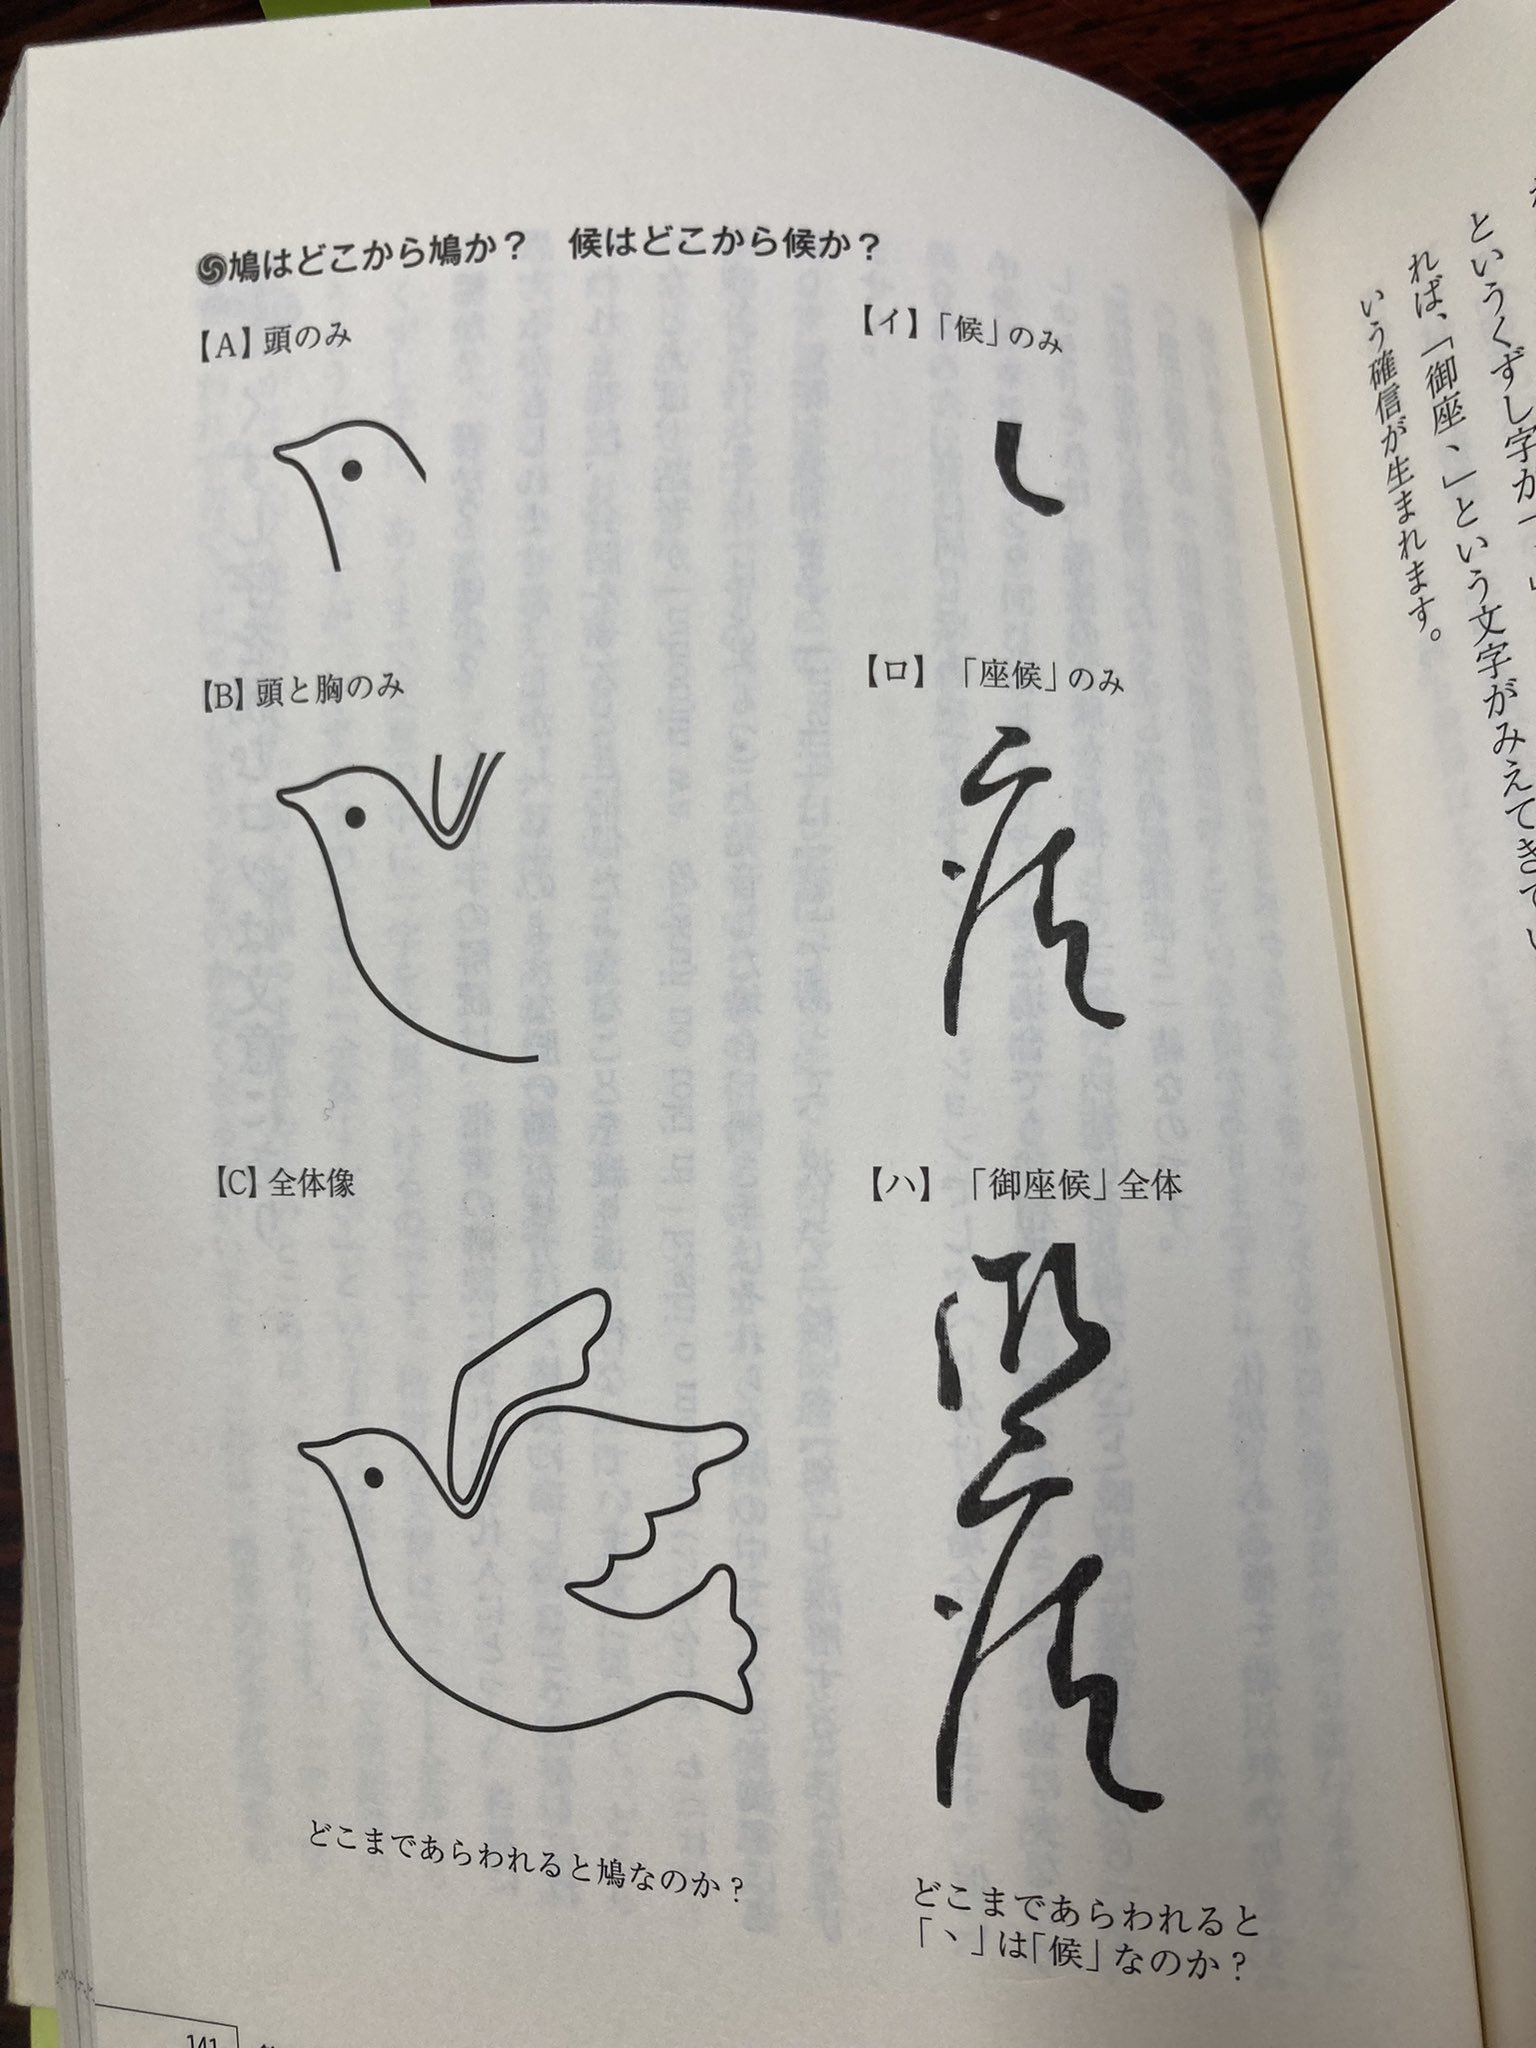 鳩はどこから鳩か？　候はどこから候か？
【A】頭のみ
【B】頭と胸のみ
【C】全体像
どこまであらわれると鳩なのか？
【イ】「候」のみ
【ロ】「座候」のみ
【ハ】「御座候」全体
御座候
どこまであらわれると
「、」は「候」なのか？
141
というくずし字が
れば、「御座、」という文字がみえてきて
いう確信が生まれます。